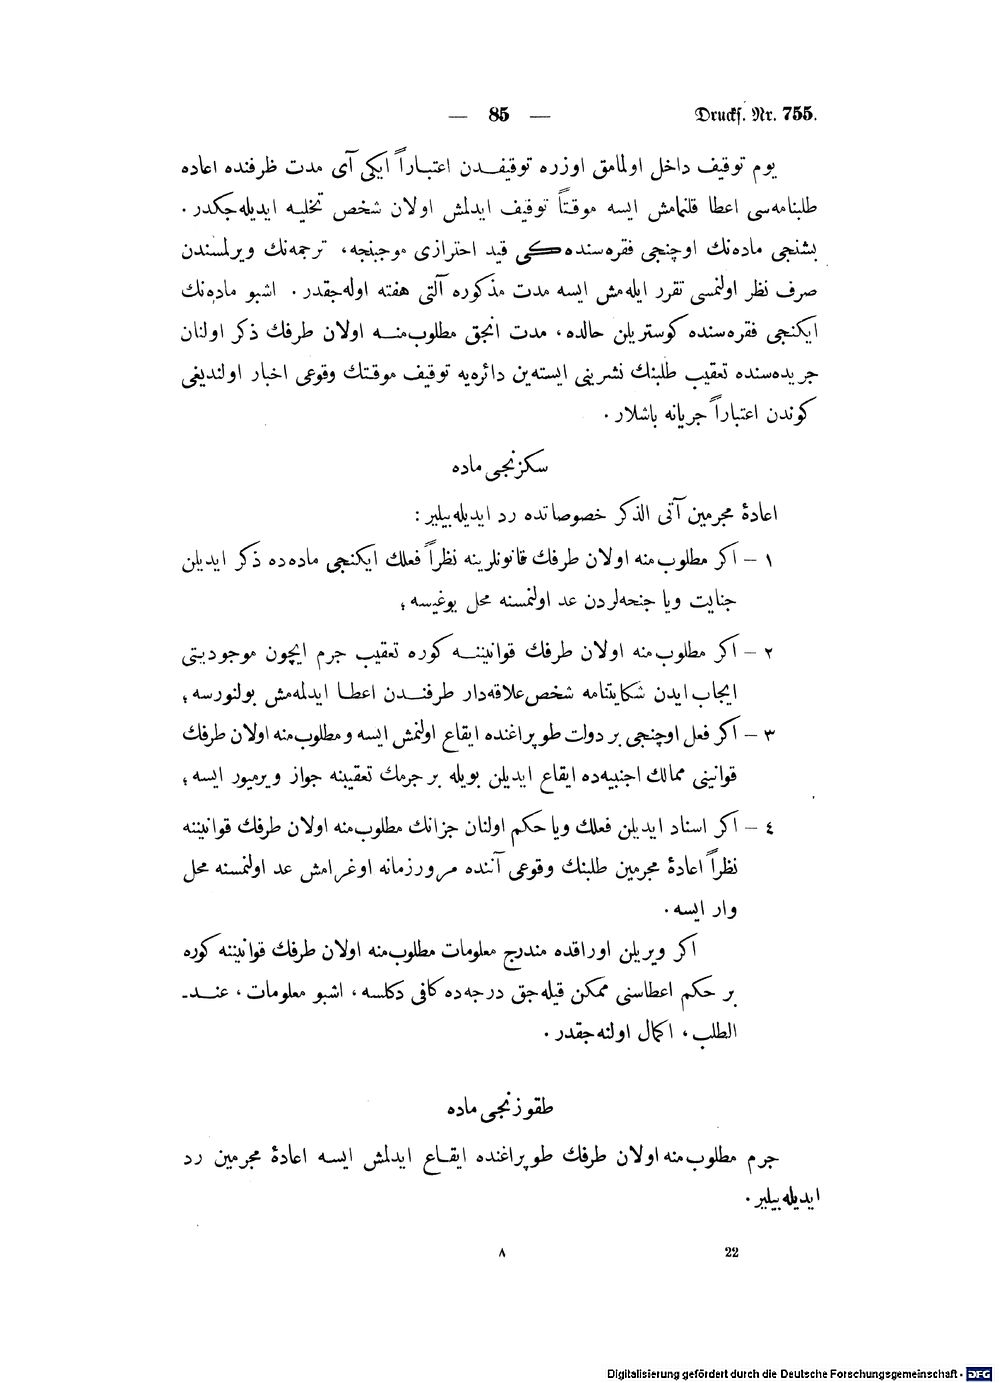 — 85 —
Drucks. Nr. 755.
يوم توقيف داخل اولمامق اوزره توقيفدن اعتباراً ايكى آى مدت ظرفنده اعاده
طلبنامه‌سى اعطا قلنمامش ايسه موقتاً توقيف ايدلمش اولان شخص تخليه ايديله‌جكدر.
بشنجى ماده‌نك اوچنجى فقره‌سنده‌كى قيد احترازى موجبنجه، ترجمه‌نك ويرلمسندن
صرف نظر اولنمسى تقرر ايله‌مش ايسه مدت مذكوره آلتى هفته اوله‌جقدر. اشبو ماده‌نك
ايكنجى فقره‌سنده كوستريلن حالده، مدت انجق مطلوب‌منه اولان طرفك ذكر اولنان
جريده‌سنده تعقيب طلبنك نشرينى ايسته‌ين دائره‌يه توقيف موقتك وقوعى اخبار اولنديغى
كوندن اعتباراً جريانه باشلار.
سكزنجى ماده
اعادۀ مجرمين آتى الذكر خصوصاتده رد ايديله‌بيلير:
١ – اكر مطلوب‌منه اولان طرفك قانونلرينه نظراً فعلك ايكنجى ماده‌ده ذكر ايديلن
جنايت ويا جنحه‌لردن عد اولنمسنه محل يوغيسه؛
٢ – اكر مطلوب‌منه اولان طرفك قوانيننه كوره تعقيب جرم ايچون موجوديتى
ايجاب ايدن شكايتنامه شخص علاقه‌دار طرفندن اعطا ايدلمه‌مش بولنورسه؛
٣ – اكر فعل اوچنجى بر دولت طوپراغنده ايقاع اولنمش ايسه و مطلوب‌منه اولان طرفك
قوانينى ممالك اجنبيه‌ده ايقاع ايديلن بويله بر جرمك تعقيبنه جواز ويرميور ايسه؛
٤ – اكر اسناد ايديلن فعلك ويا حكم اولنان جزانك مطلوب‌منه اولان طرفك قوانيننه
نظراً اعادۀ مجرمين طلبنك وقوعى آننده مرورزمانه اوغرامش عد اولنمسنه محل
وار ايسه.
اكر ويريلن اوراقده مندرج معلومات مطلوب‌منه اولان طرفك قوانيننه كوره
بر حكم اعطاسنى ممكن قيله‌جق درجه‌ده كافى دكلسه، اشبو معلومات، عند-
الطلب، اكمال اولنه‌جقدر.
طقوزنجى ماده
جرم مطلوب‌منه اولان طرفك طوپراغنده ايقاع ايدلمش ايسه اعادۀ مجرمين رد
ايديله‌بيلير.
٨
22
Digitalisierung gefördert durch die Deutsche Forschungsgemeinschaft - DFG